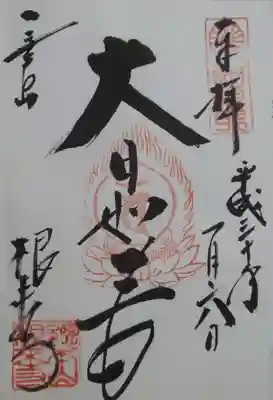 奉拝
平成三十年
一月六日
大日如来
一乗山
根来寺